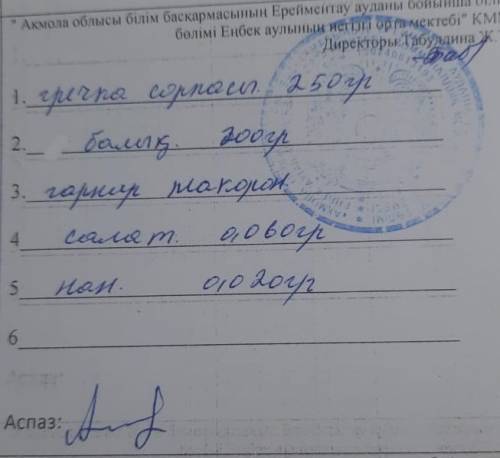 " Ақмола облысы білім басқармасының Ерейментау ауданы бойынша білім
бөлімі Еңбек аулының негізгі орта мектебі" КММ
Директоры: Табулдина Ж.
1. гречка сорпасы. 250гр
2. балық. 200гр
3. гарнир макарон
4 салат. 0,060гр
5 нан. 0,020гр
6
Аспаз: